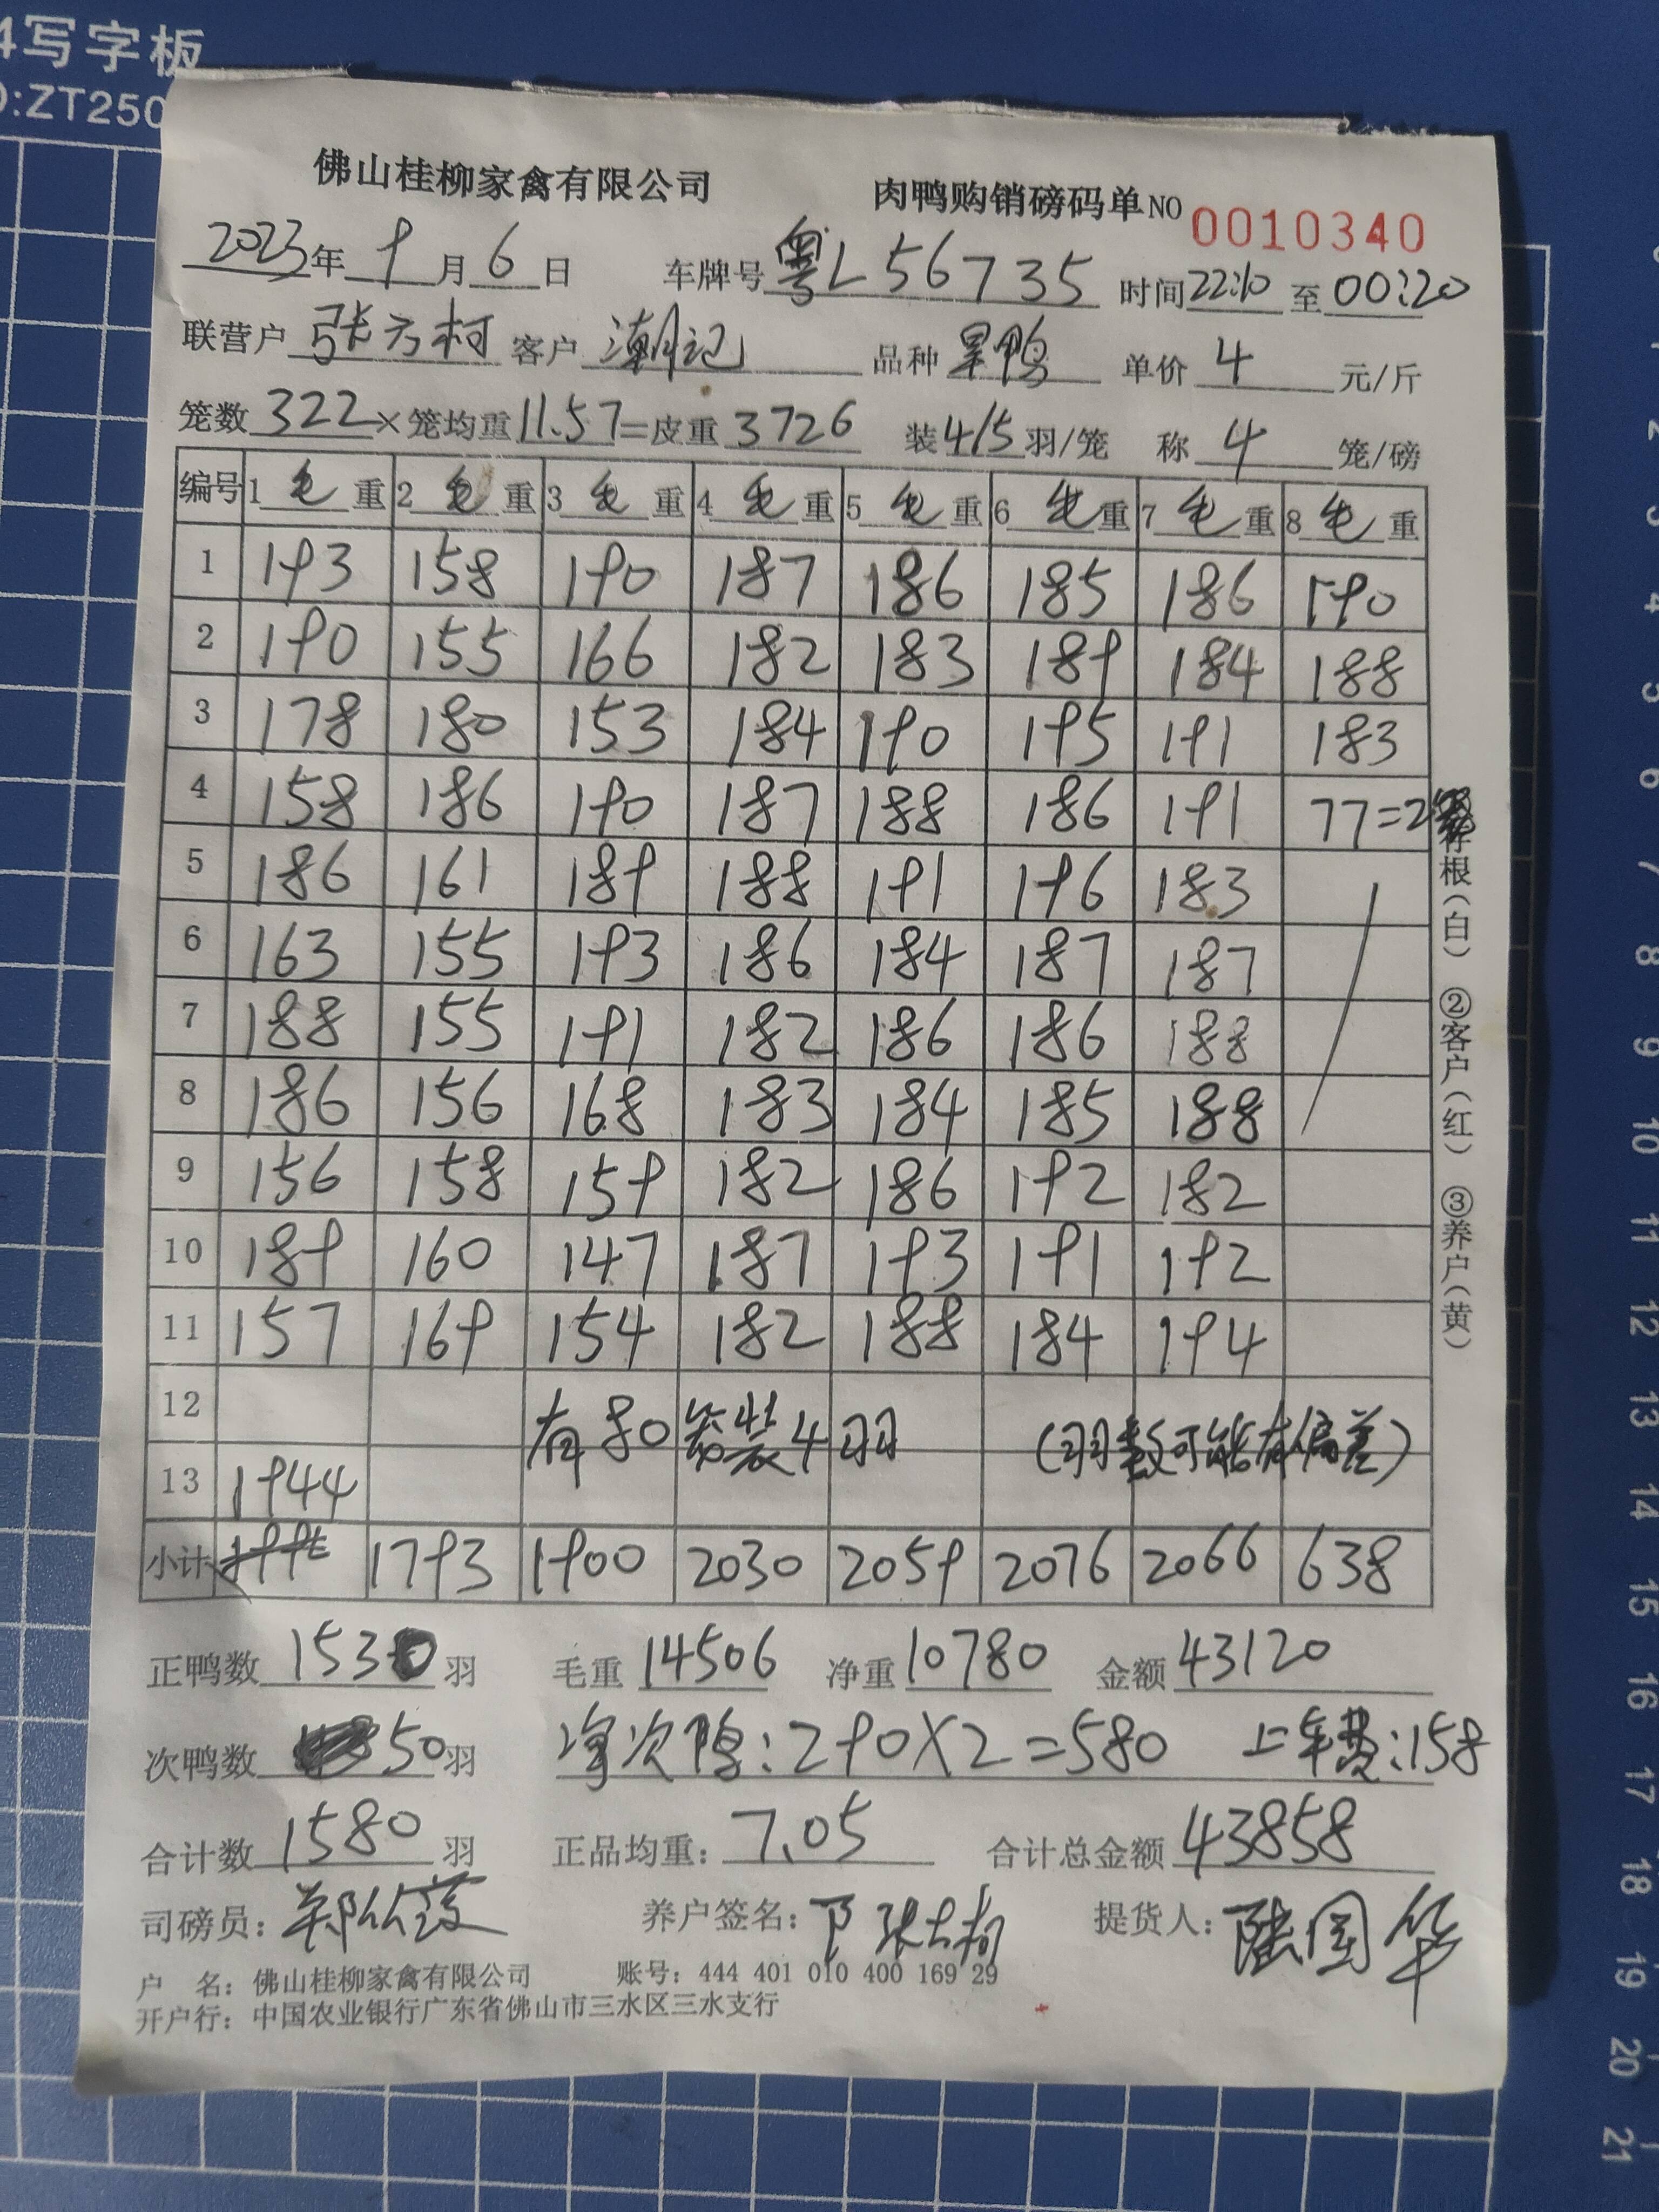 4写字板
D:ZT250
佛山桂柳家禽有限公司 肉鸭购销磅码单NO 0010340
2023年9月6日 车牌号粤L56735 时间22:10至00:20
联营户张方柯 客户潮记 品种旱鸭 单价4元/斤
笼数322×笼均重11.57=皮重3726 装4/5羽/笼 称4笼/磅
编号 1毛重 2毛重 3毛重 4毛重 5毛重 6毛重 7毛重 8毛重
1 193 158 190 187 186 185 186 190
2 190 155 166 182 183 189 184 188
3 178 180 153 184 190 195 191 183
4 158 186 190 187 188 186 191 77=2
5 186 161 189 188 191 196 183
6 163 155 193 186 184 187 187
7 188 155 191 182 186 186 188
8 186 156 168 183 184 185 188
9 156 158 159 182 186 192 182
10 189 160 147 187 193 191 192
11 157 169 154 182 188 184 194
12 有80笼装4羽 (羽数可能有偏差)
13 1944
小计 1793 1900 2030 2059 2076 2066 638
存根(白) ②客户(红) ③养户(黄)
正鸭数1530羽 毛重14506 净重10780 金额43120
次鸭数50羽 净次鸭:290×2=580 上车费:158
合计数1580羽 正品均重:7.05 合计总金额43858
司磅员: 养户签名: 提货人:陆国华
户 名:佛山桂柳家禽有限公司 账号:444 401 010 400 169 29
开户行:中国农业银行广东省佛山市三水区三水支行
1
2
3
4
5
6
7
8
9
10
11
12
13
14
15
16
17
18
19
20
21